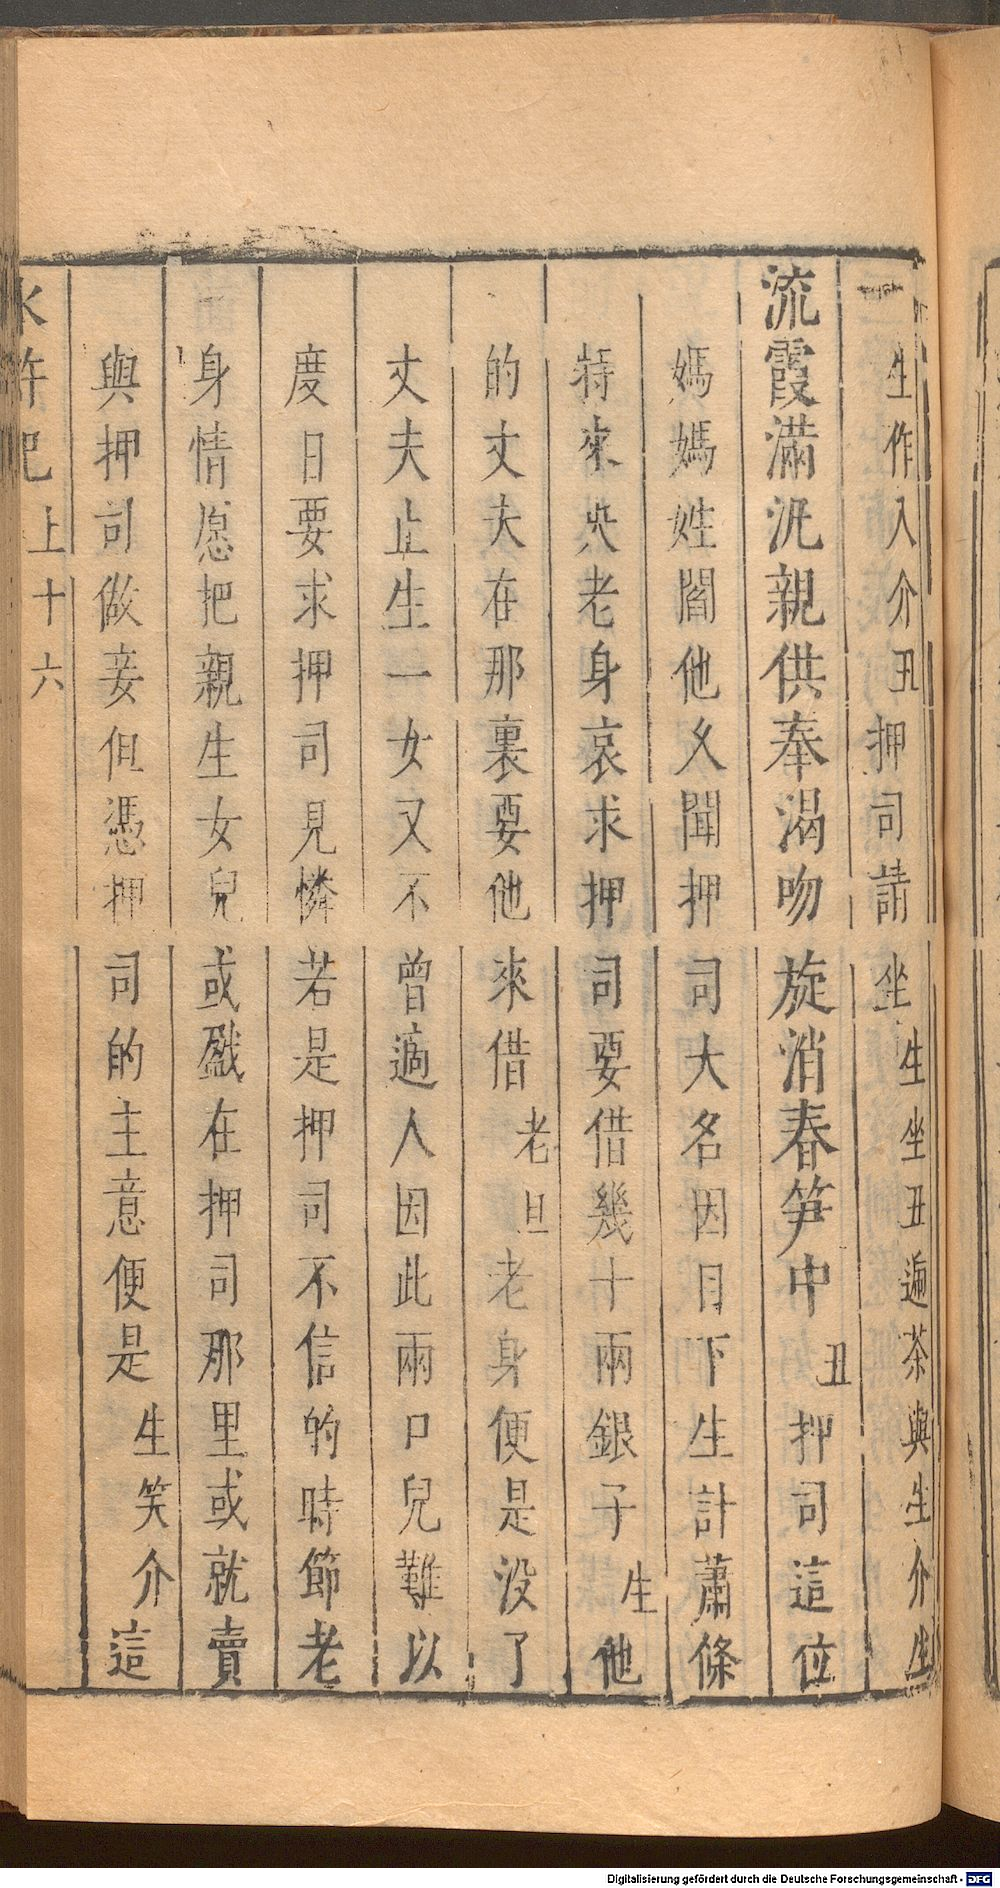 生作入介丑押司請坐生坐丑遞茶與生介生
流霞滿泛親供奉渴吻旋消春笋中丑押司這位
媽媽姓閻他久聞押司大名因目下生計蕭條
特來央老身哀求押司要借幾十兩銀子生他
的丈夫在那裏要他來借老旦老身便是没了
丈夫止生一女又不曾適人因此兩口兒難以
度日要求押司見憐若是押司不信的時節老
身情愿把親生女兒或戤在押司那里或就賣
與押司做妾但憑押司的主意便是生笑介這
水滸記上十六
Digitalisierung gefördert durch die Deutsche Forschungsgemeinschaft - DFG